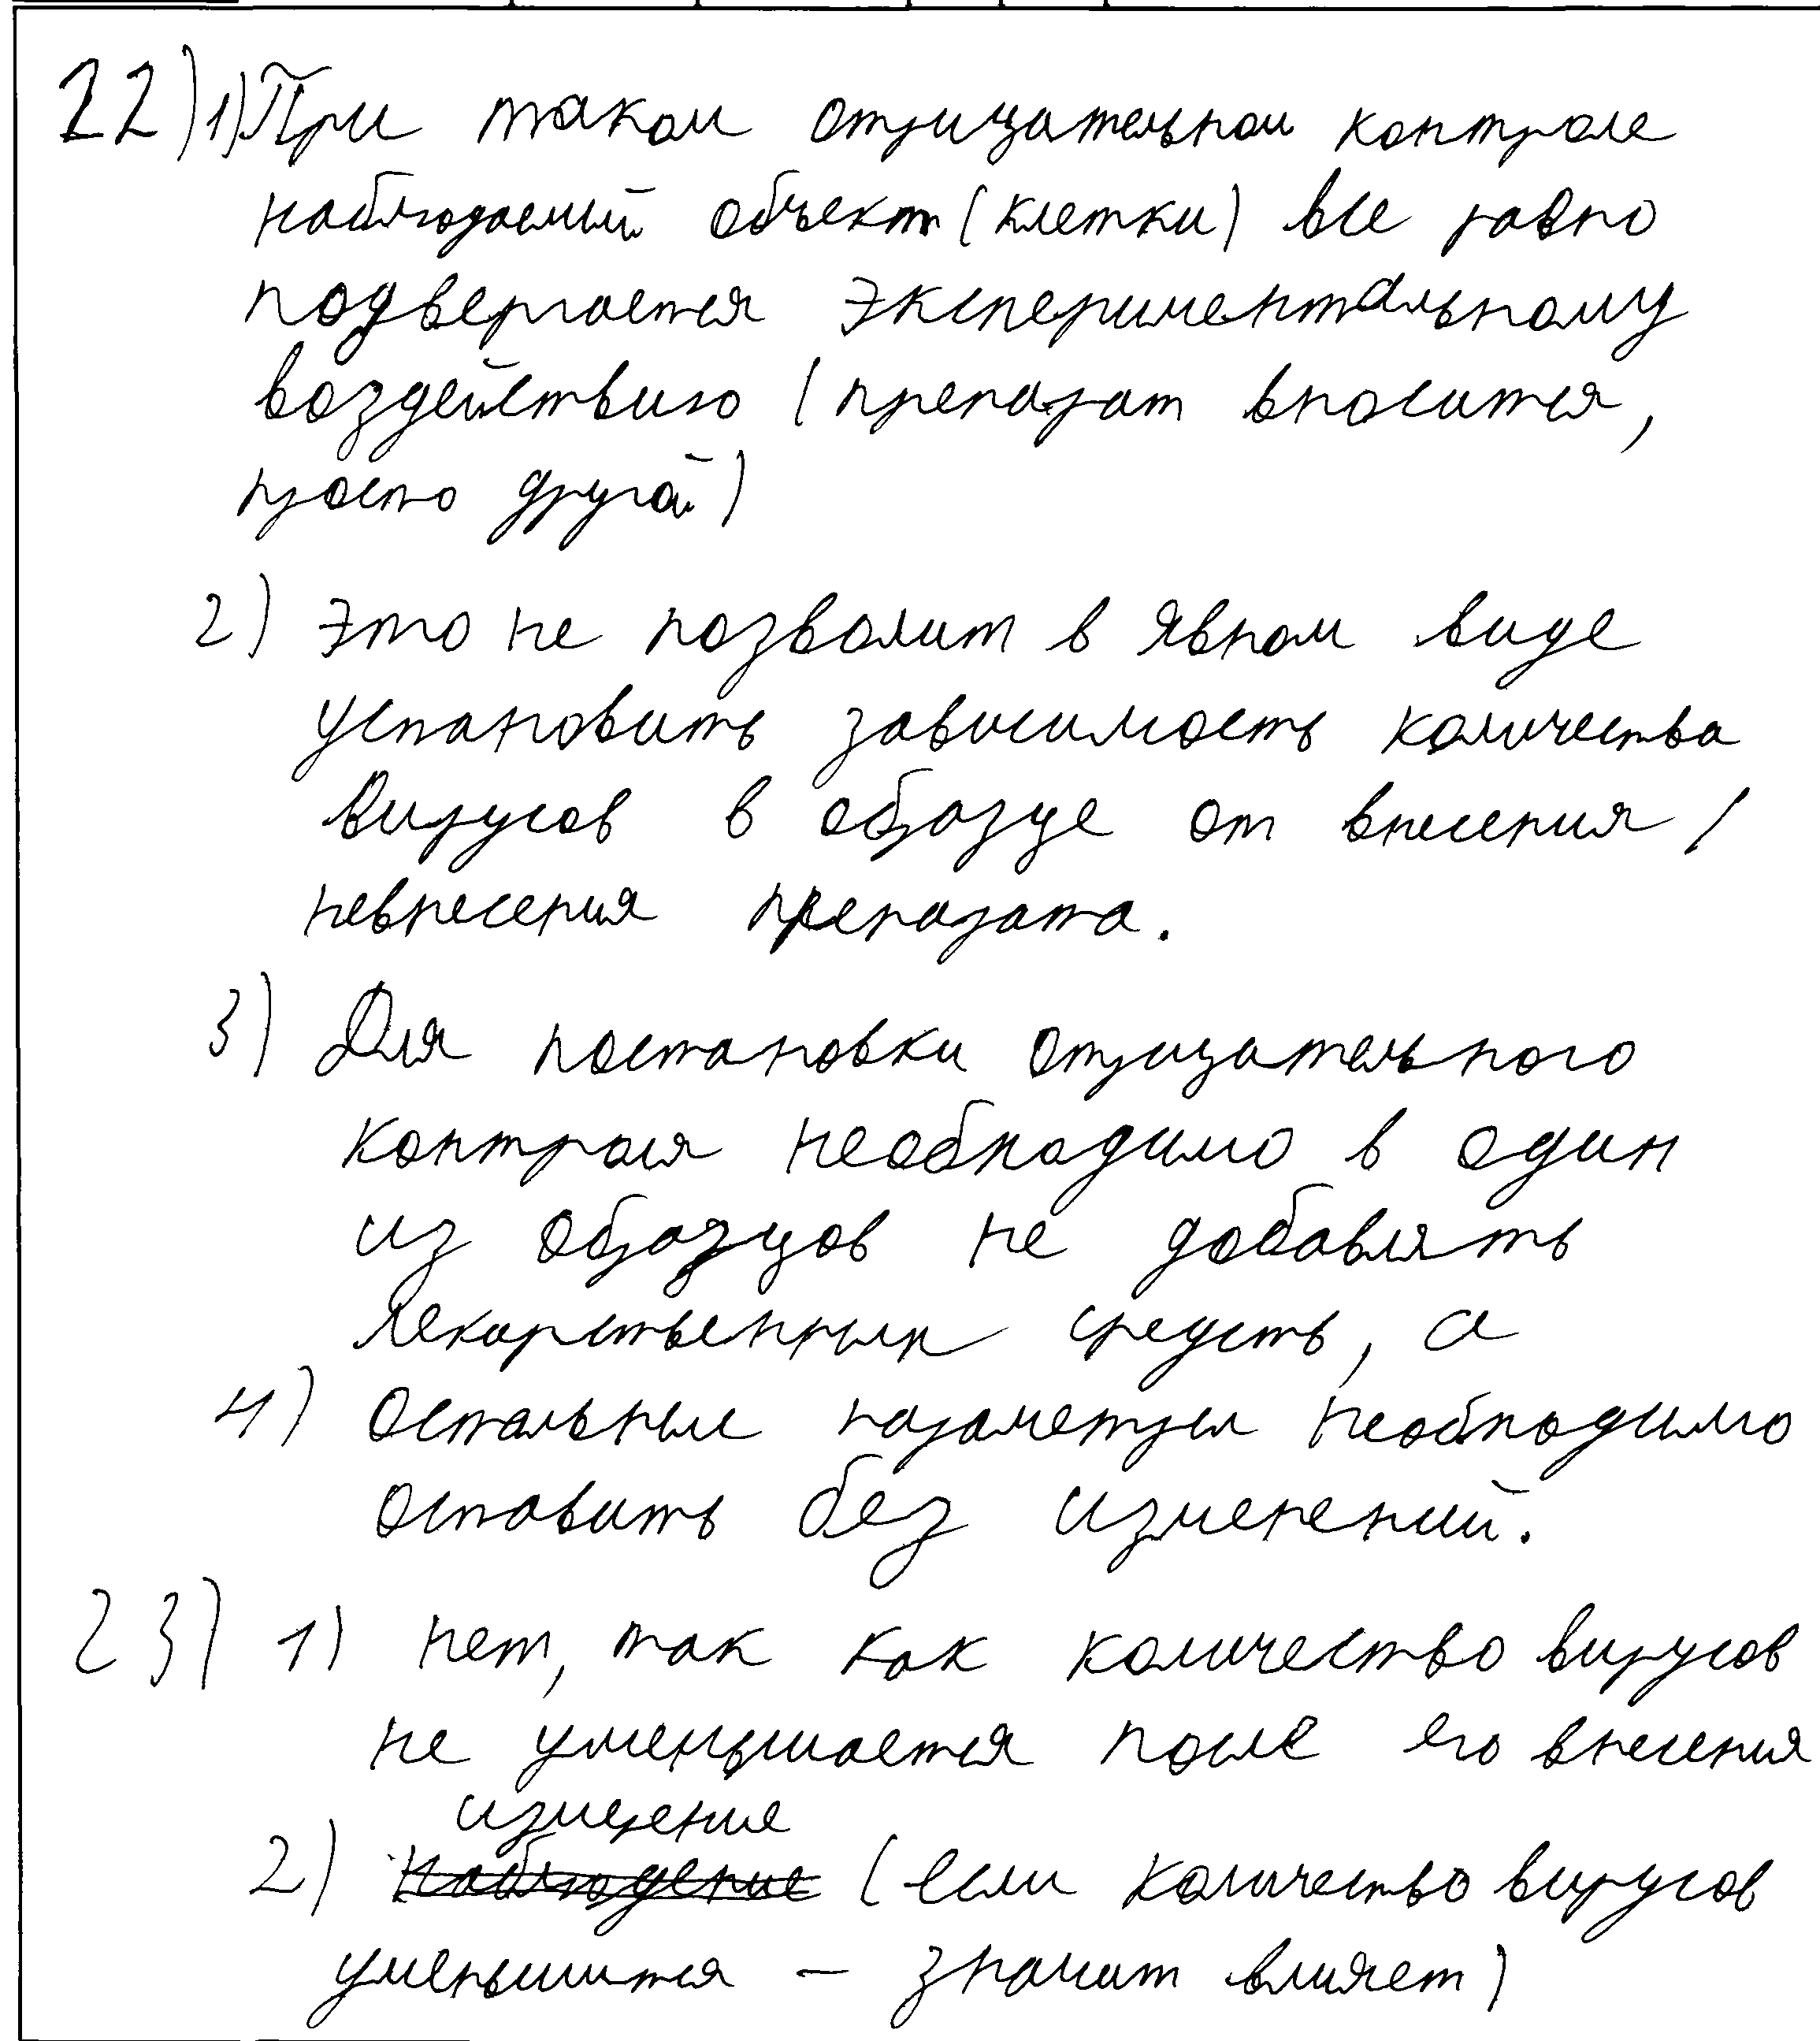 22) 1) При таком отрицательном контроле
наблюдаемый объект (клетки) все равно
подвергается экспериментальному
воздействию (препарат вносится,
просто другой)
2) Это не позволит в явном виде
установить зависимость количества
вирусов в образце от внесения /
невнесения препарата.
3) Для постановки отрицательного
контроля необходимо в один
из образцов не добавлять
лекарственных средств, а
4) остальные параметры необходимо
оставить без изменений.
23) 1) нет, так как количество вирусов
не уменьшается после его внесения
измерение
2) ~~наблюдение~~ (если количество вирусов
уменьшится – значит влияет)